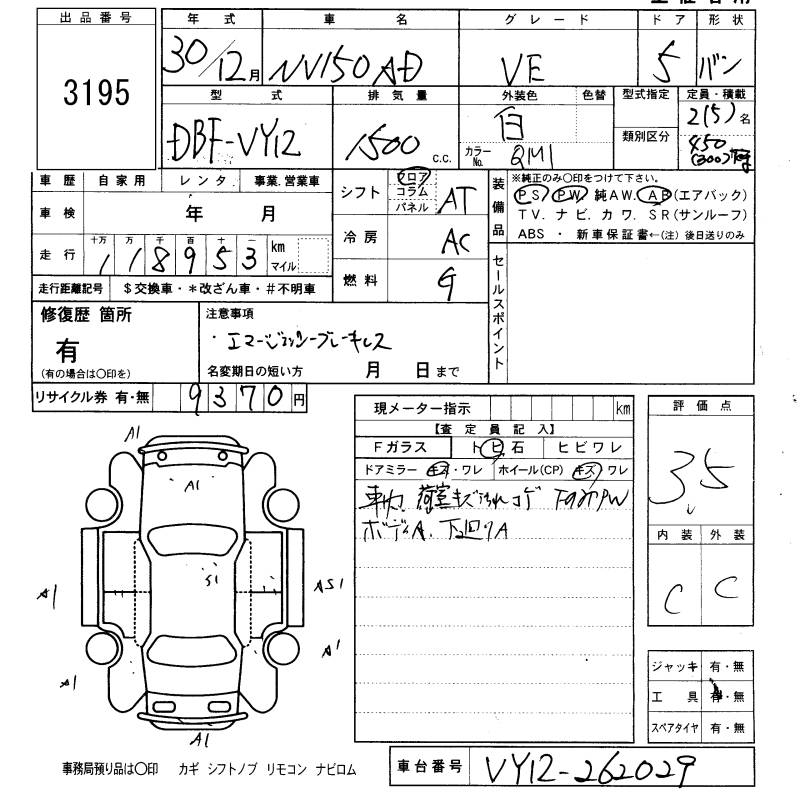 出品番号
3195
年式 車名 グレード ドア 形状
30/12月 NV150AD VE 5 バン
型式 排気量 外装色 色替 型式指定 定員・積載
DBF-VY12 1500 c.c. 白 カラーNo. QM1 類別区分 2(5)名
450(300)
車歴 自家用 レンタ 事業.営業車
車検 年 月
走行 十万 万 千 百 十 一 118953 km マイル
走行距離記号 $交換車・*改ざん車・#不明車
シフト フロア コラム パネル AT
冷房 AC
燃料 G
装備品
※純正のみ〇印をつけて下さい。
PS. PW. 純AW. AB(エアバック)
TV. ナビ. カワ. SR(サンルーフ)
ABS ・ 新車保証書←(注)後日送りのみ
セールスポイント
修復歴 箇所
有
(有の場合は〇印を)
注意事項
・エマージェンシーブレーキレス
名変期日の短い方 月 日まで
リサイクル券 有・無 9370円
現メーター指示 km
【査定員記入】
Fガラス ト ヒ 石 ヒビワレ
ドアミラー キズ・ワレ ホイール(CP) キズ ワレ
車内.荷室キズ汚れコゲ
ボディA.下廻りA
評価点
35
内装 外装
C C
ジャッキ 有・無
工具 有・無
スペアタイヤ 有・無
A1
A1
S1
A1
AS1
A1
A1
A1
事務局預り品は〇印 カギ シフトノブ リモコン ナビロム
車台番号 VY12-262029